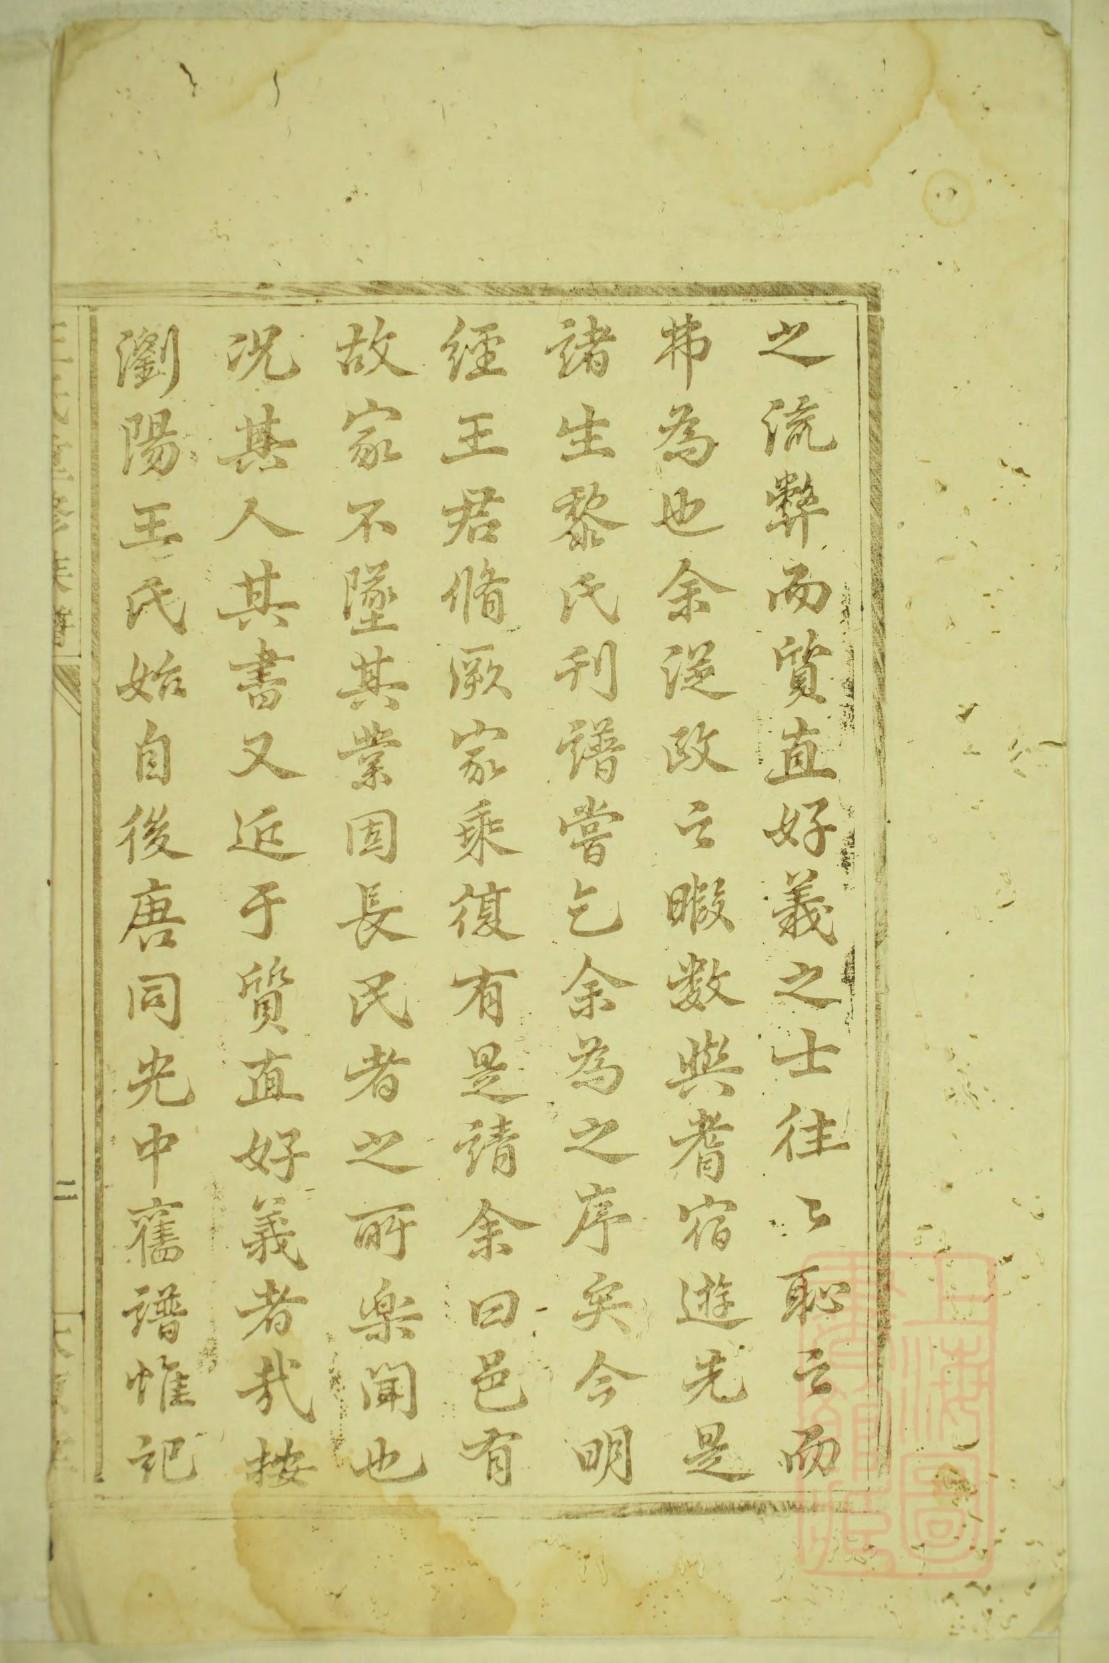 之流弊而質直好義之士往〻恥之而
弗為也余從政之暇数與耆宿遊先是
諸生黎氏刊譜嘗乞余為之序矣今明
經王君脩厥家乘復有是請余曰邑有
故家不墜其業固長民者之所樂聞也
况其人其書又近于質直好義者哉按
瀏陽王氏始自後唐同光中舊譜惟記
二
上海圖書館藏